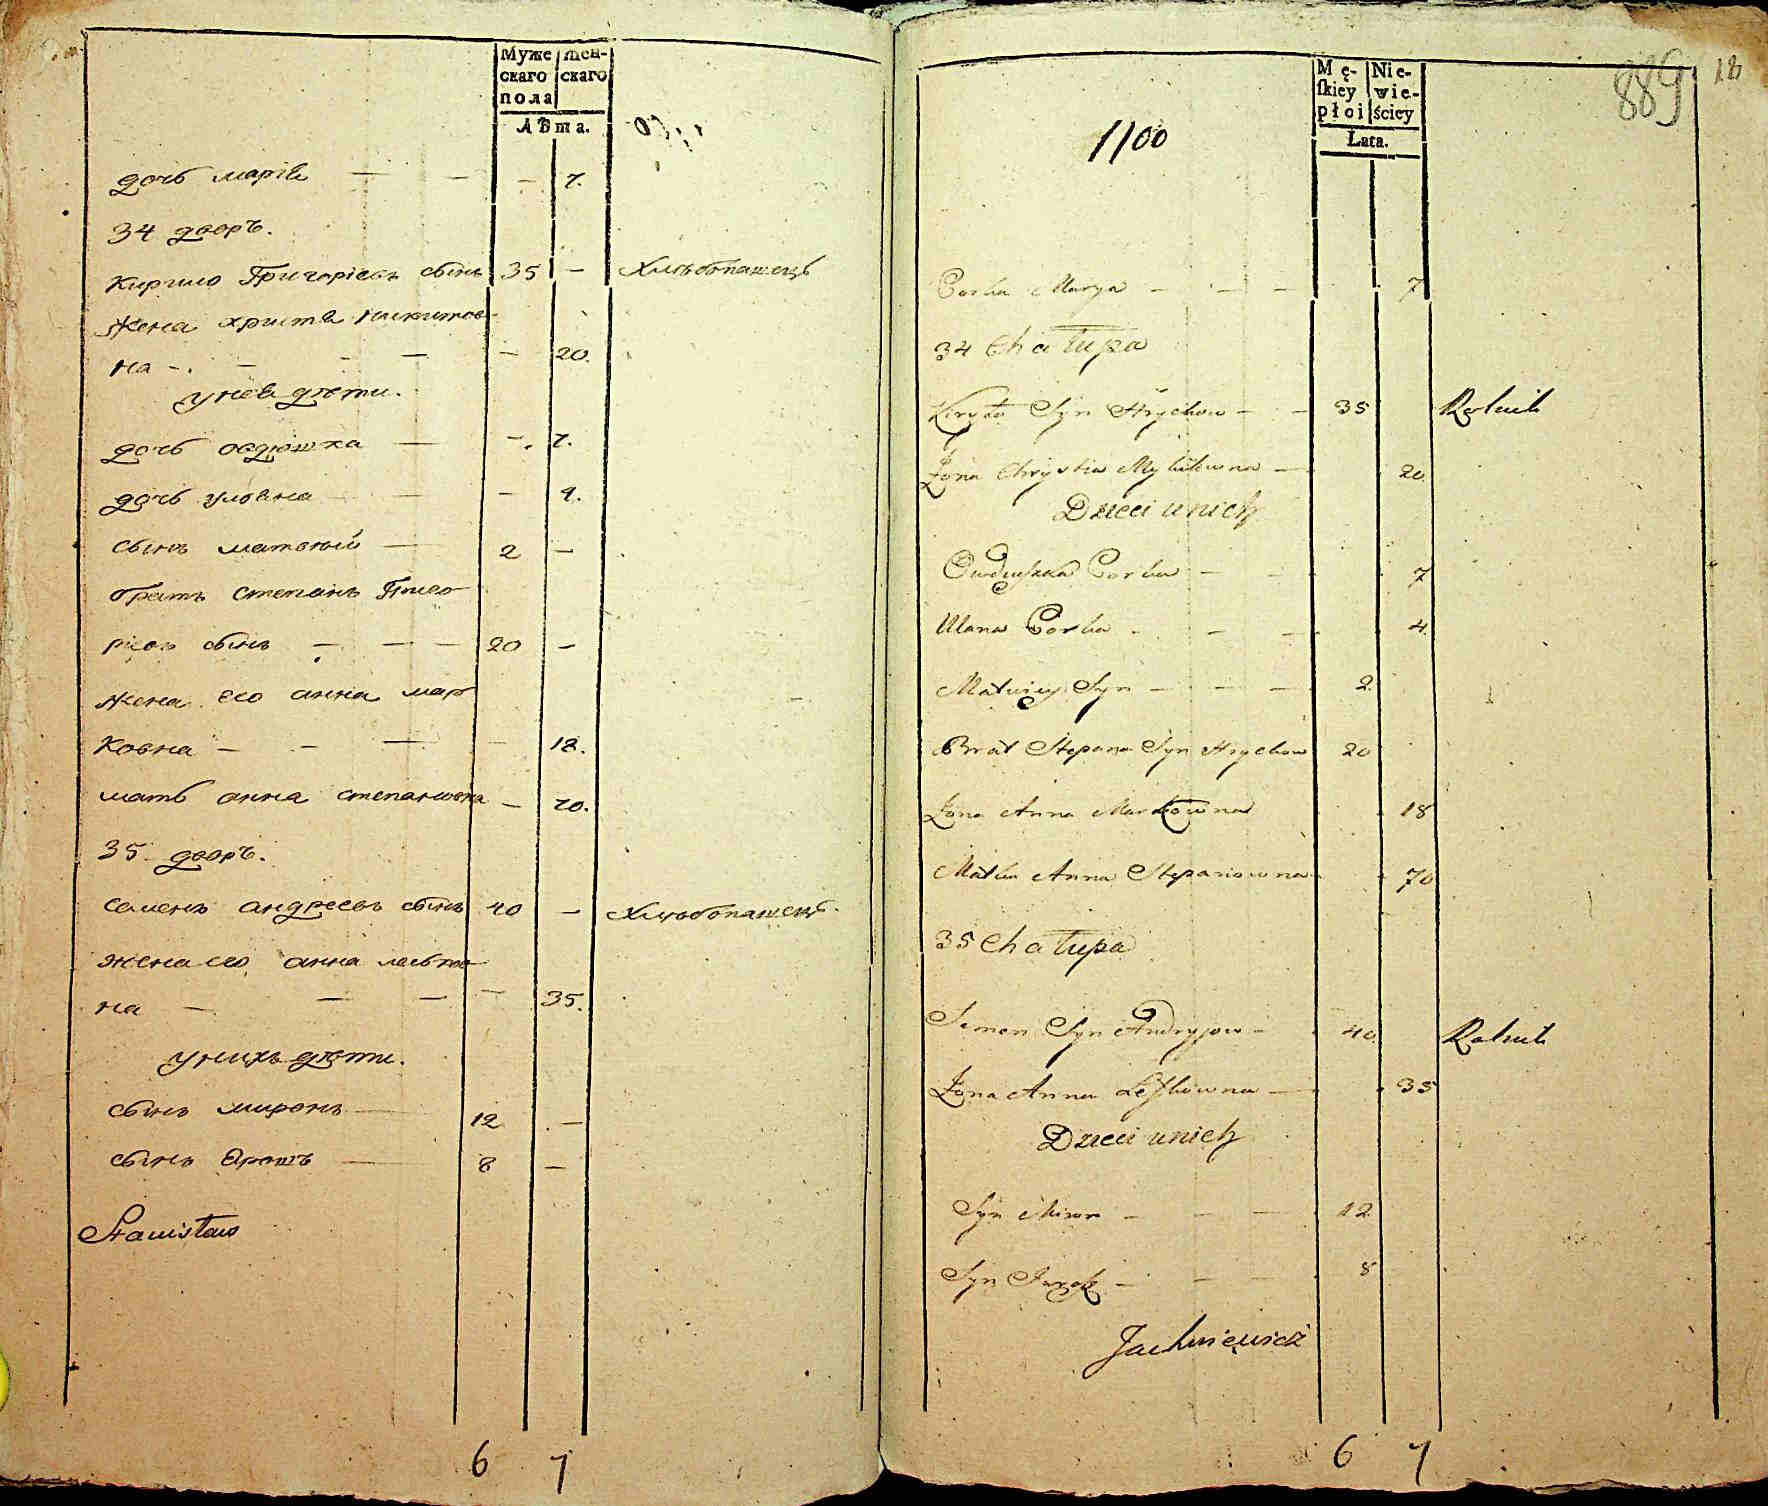 Муже
скаго
пола
жен-
скаго
Лѣта.
дочь марія — — — 7.
34 дворъ.
Кирило Григоріевъ сынъ 35 — Хлѣбопашецъ
Жена христя никитов-
на - . — - — — 20.
у нея дѣти.
дочь овдюшка — — . 7.
дочь уляна — — 4.
сынъ матвѣй — 2 —
братъ степанъ Григо
рієвъ сынъ — — — 20 —
жена его анна мар
ковна — — — — 18.
мать анна степановна — 70.
35 дворъ.
семенъ андреевъ сынъ 40 — Хлѣбопашецъ.
жена его анна леськов
на — — — — 35.
у нихъ дѣти.
сынъ миронъ — 12 . —
сынъ — 8 —
Stanisław
6 7
889 18
Mę-
skiey
płoi
Nie-
wie-
ściey
Lata.
1100
Corka Marya — - — — 7
34 Chałupa
Kiryło Syn Hrychow — — 35 Rolnik
Żona Chrystia Mykitowna — 20
Dzieci u nich
Owdiuszka Corka — - 7
Ulana Corka - — — 4.
Matwiey Syn — — — 2.
Brat Stepan Syn Hrychow 20
Żona Anna Markowna 18
Matka Anna Stepanowna 70
35 Chałupa
Semen Syn Andryjow — 40. Rolnik
Żona Anna Leśkowna — 35
Dzieci u nich
Syn Miron — - — 12
Syn — - — 8
Jachniewicz
6 7